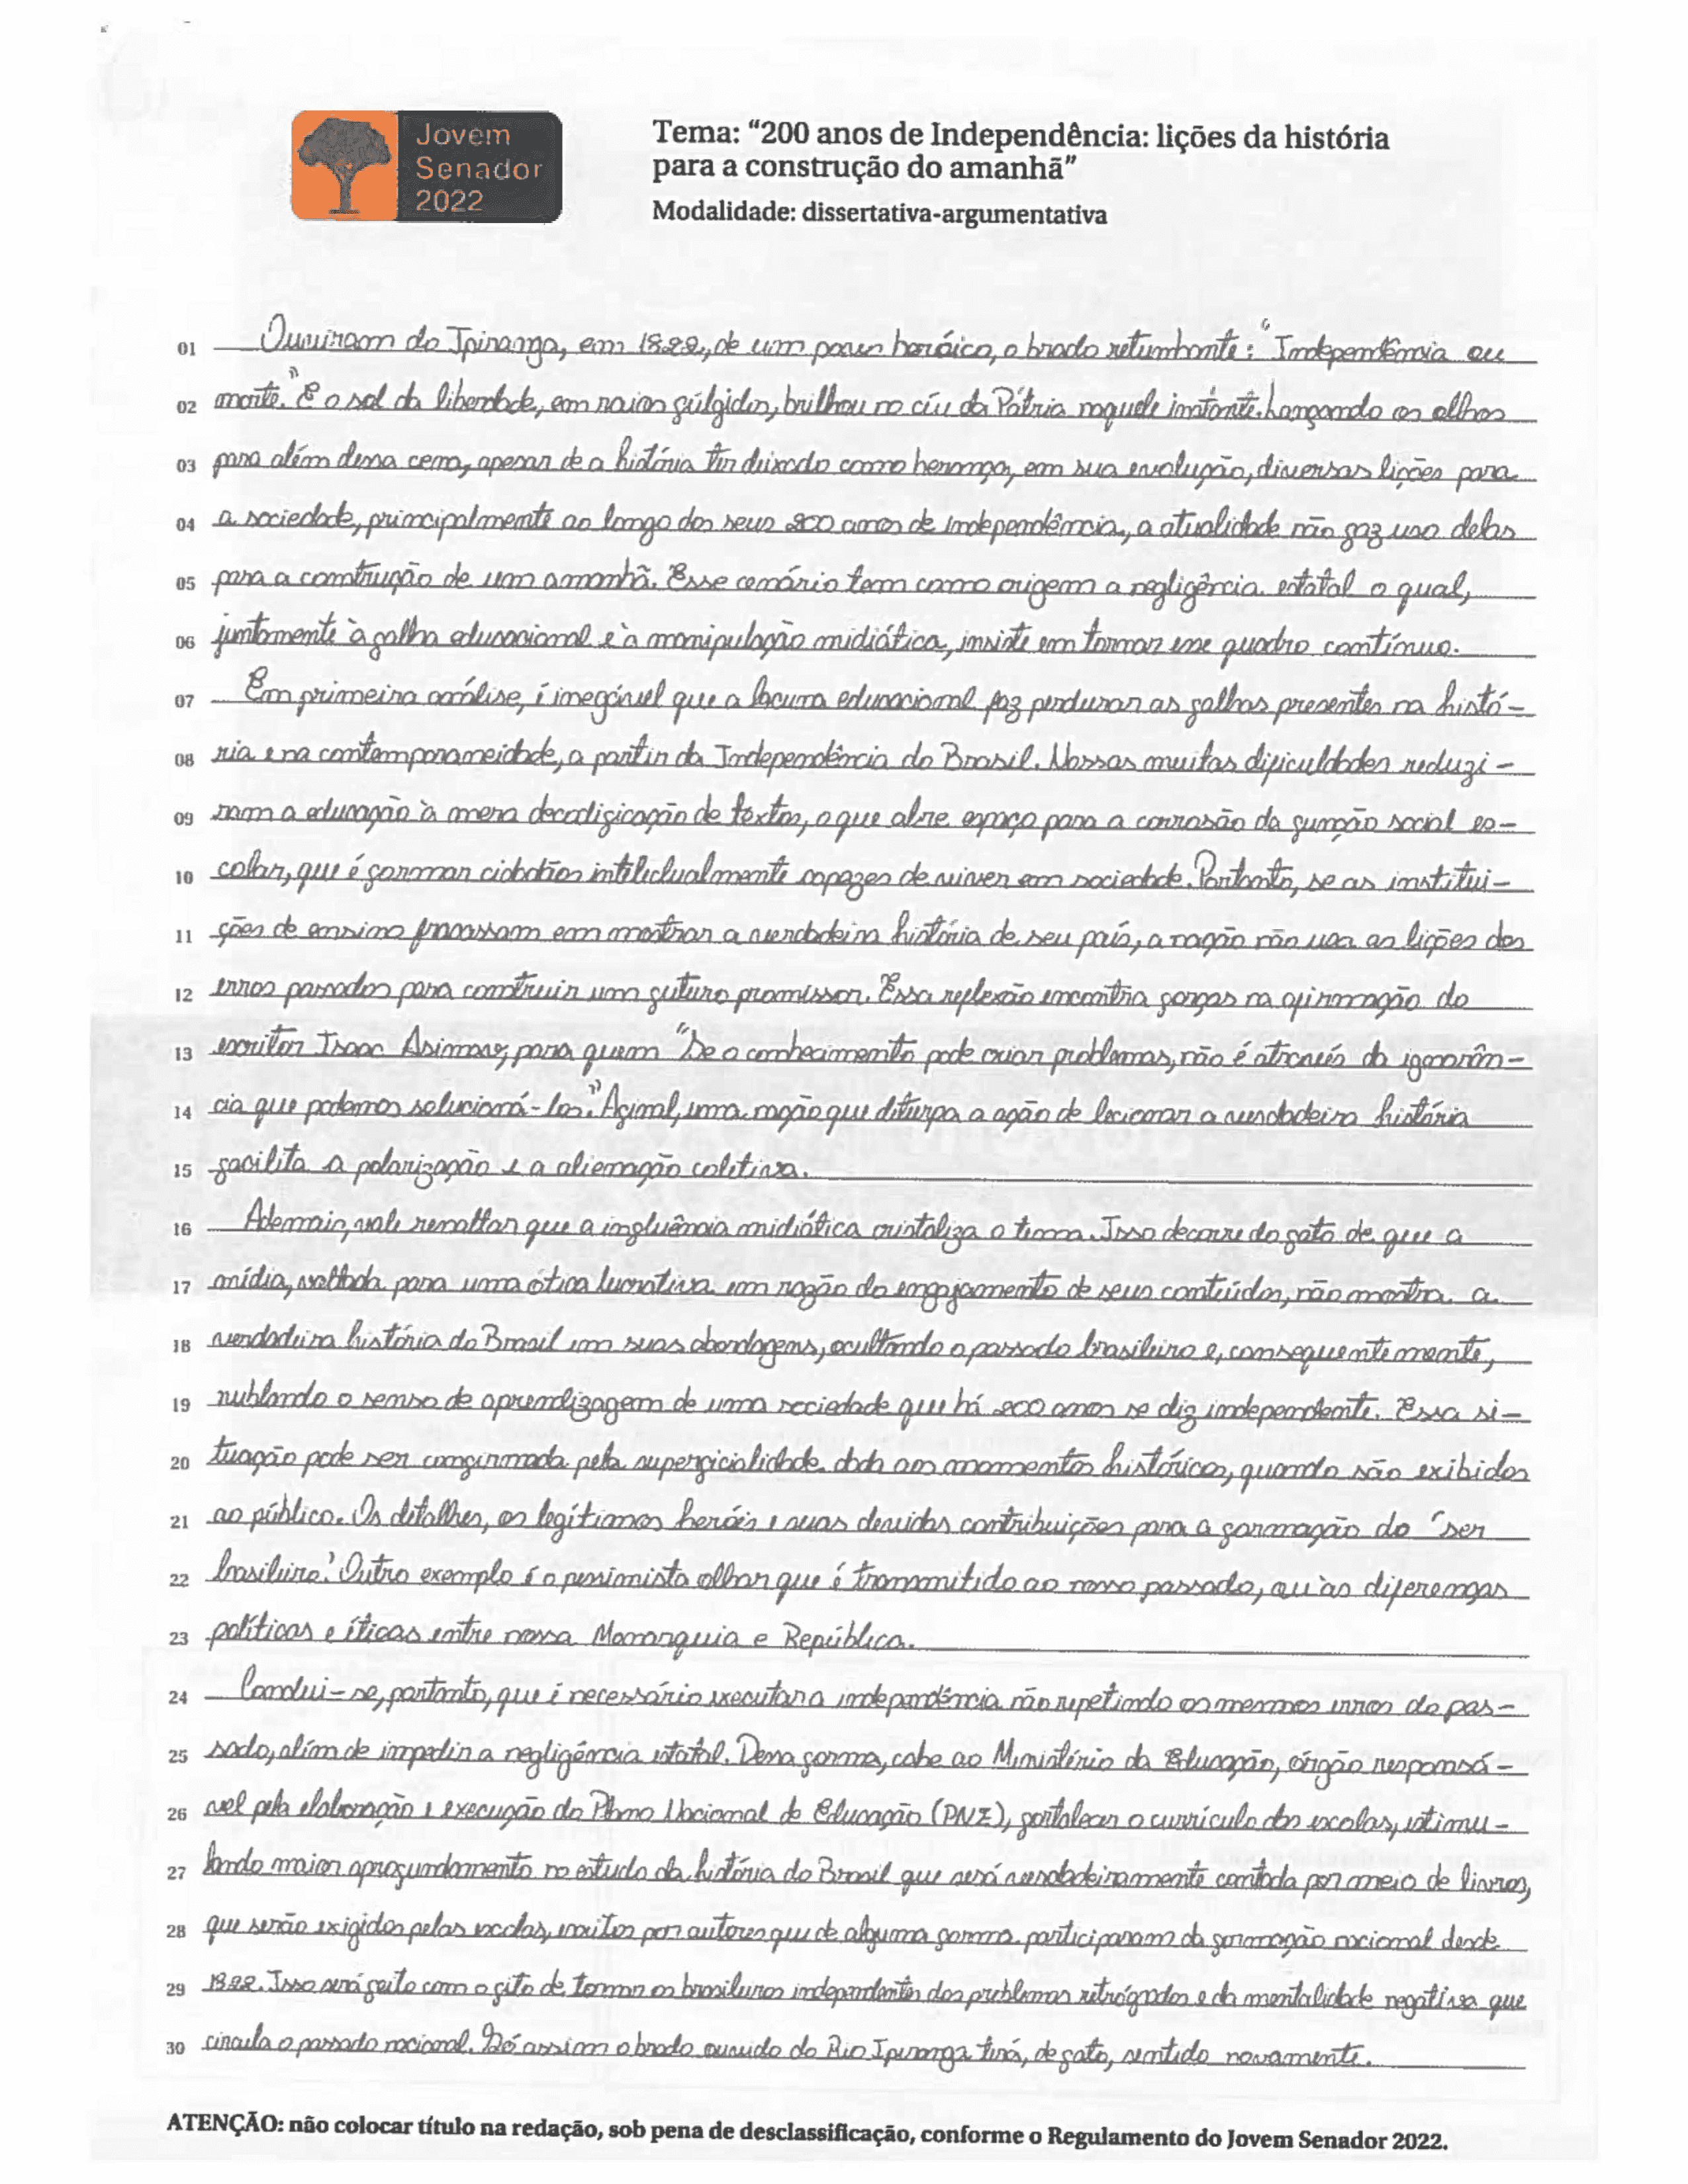 Jovem
Senador
2022
Tema: "200 anos de Independência: lições da história
para a construção do amanhã"
Modalidade: dissertativa-argumentativa
01 Ouviram do Ipiranga, em 1822, de um povo heróico, o brado retumbante: "Independência ou
02 morte." E o sol da liberdade, em raios fúlgidos, brilhou no céu da Pátria naquele instante. Lançando os olhos
03 para além dessa cena, apesar de a história ter deixado como herança, em sua evolução, diversas lições para
04 a sociedade, principalmente ao longo dos seus 200 anos de Independência, a atualidade não faz uso delas
05 para a construção de um amanhã. Esse cenário tem como origem a negligência estatal o qual,
06 juntamente à falha educacional e à manipulação midiática, insiste em tornar esse quadro contínuo.
07 Em primeira análise, é inegável que a lacuna educacional faz perdurar as falhas presentes na histó-
08 ria e na contemporaneidade, a partir da Independência do Brasil. Nossas muitas dificuldades reduzi-
09 ram a educação à mera decodificação de textos, o que abre espaço para a corrosão da função social es-
10 colar, que é formar cidadãos intelectualmente capazes de viver em sociedade. Portanto, se as institui-
11 ções de ensino fracassam em mostrar a verdadeira história de seu país, a nação não usa as lições dos
12 erros passados para construir um futuro promissor. Essa reflexão encontra forças na afirmação do
13 escritor Isaac Asimov, para quem "Se o conhecimento pode criar problemas, não é através da ignorân-
14 cia que podemos solucioná-los." Afinal, uma nação que diturpa a ação de lecionar a verdadeira história
15 facilita a polarização e a alienação coletiva.
16 Ademais, vale ressaltar que a influência midiática cristaliza o tema. Isso decorre do fato de que a
17 mídia, voltada para uma ótica lucrativa em razão do engajamento de seus conteúdos, não mostra a
18 verdadeira história do Brasil em suas abordagens, ocultando o passado brasileiro e, consequentemente,
19 nublando o senso de aprendizagem de uma sociedade que há 200 anos se diz independente. Essa si-
20 tuação pode ser confirmada pela superficialidade dada aos momentos históricos, quando são exibidos
21 ao público. Os detalhes, os legítimos heróis e suas devidas contribuições para a formação do "ser
22 brasileiro." Outro exemplo é o pessimista olhar que é transmitido ao nosso passado, ou às diferenças
23 políticas e éticas entre nossa Monarquia e República.
24 Conclui-se, portanto, que é necessário executar a independência não repetindo os mesmos erros do pas-
25 sado, além de impedir a negligência estatal. Dessa forma, cabe ao Ministério da Educação, órgão responsá-
26 vel pela elaboração e execução do Plano Nacional de Educação (PNE), fortalecer o currículo das escolas, estimu-
27 lando maior aprofundamento no estudo da história do Brasil que será verdadeiramente contada por meio de livros,
28 que serão exigidos pelas escolas, escritos por autores que de alguma forma participaram da formação nacional desde
29 1822. Isso será feito com o fito de tornar os brasileiros independentes dos problemas retrógrados e da mentalidade negativa que
30 circula o passado nacional. Só assim o brado ouvido do Rio Ipiranga terá, de fato, sentido novamente.
ATENÇÃO: não colocar título na redação, sob pena de desclassificação, conforme o Regulamento do Jovem Senador 2022.